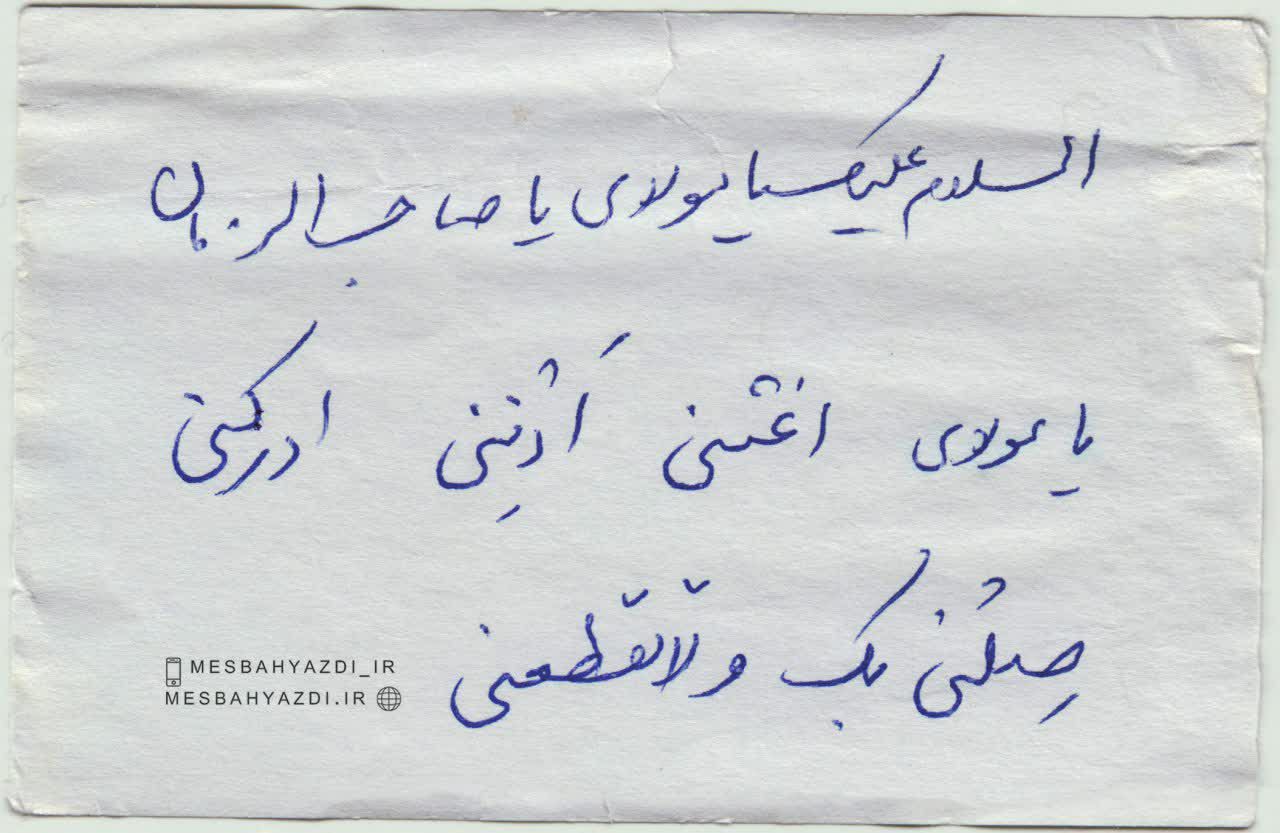 السلام علیک یا مولای یا صاحب الزمان
یا مولای اغثنی اَدْنِنی ادرکنی
صِلْنی بک و لا تقطعنی
MESBAHYAZDI_IR
MESBAHYAZDI.IR